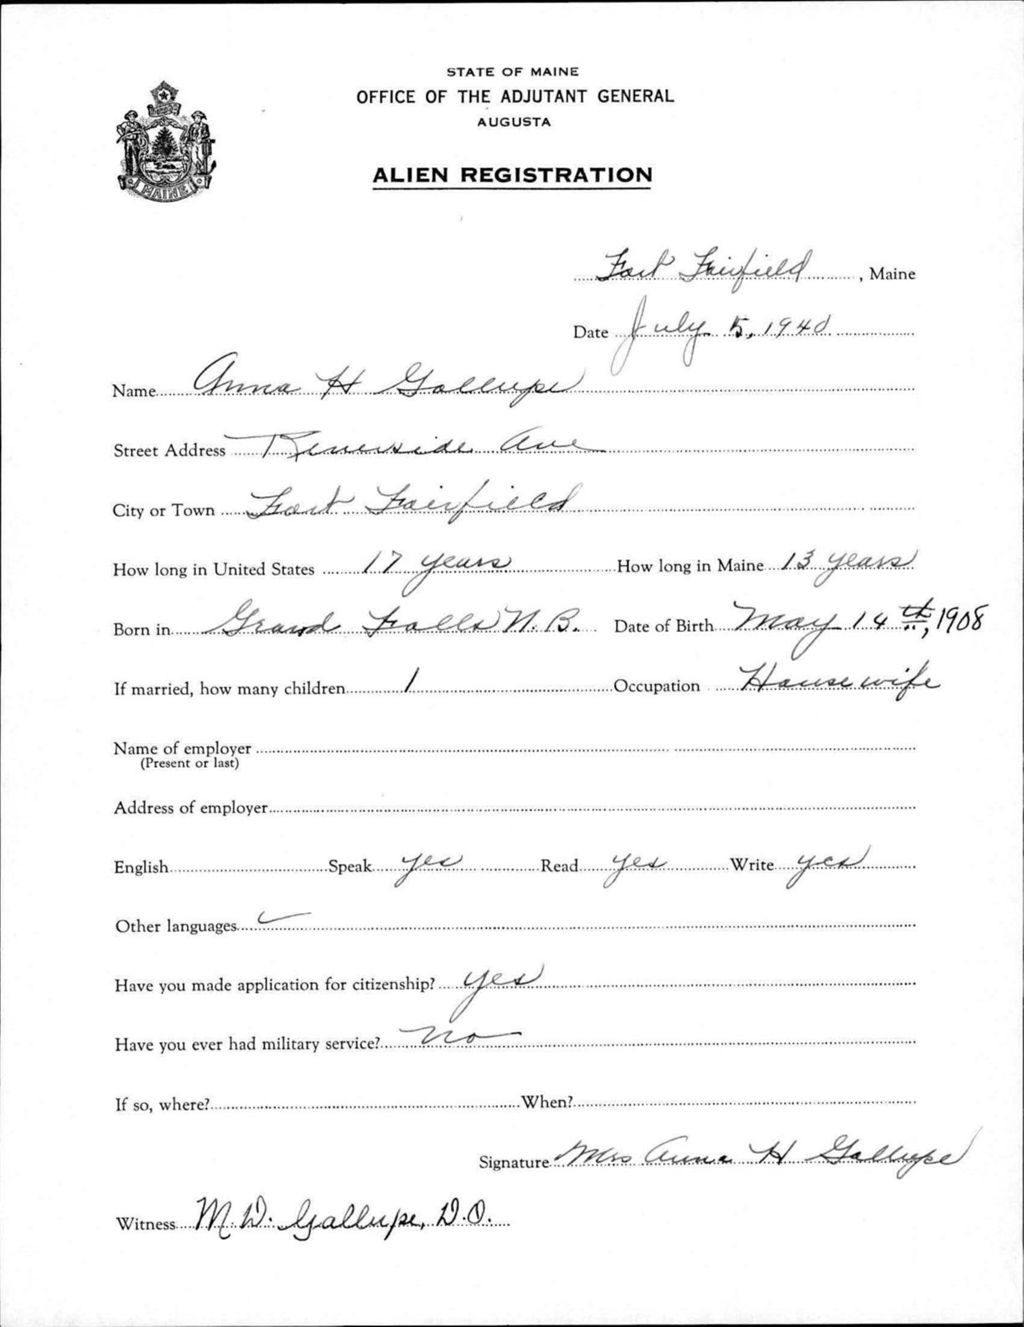 STATE OF MAINE
OFFICE OF THE ADJUTANT GENERAL
AUGUSTA
ALIEN REGISTRATION
MAINE
Fort Fairfield, Maine
Date July 5, 1940
Name Anna H Gallupe
Street Address Ave
City or Town Fort Fairfield
How long in United States 17 years How long in Maine 13 years
Born in Grand Falls N.B. Date of Birth May 14th, 1908
If married, how many children 1 Occupation Housewife
Name of employer
(Present or last)
Address of employer
English Speak yes Read yes Write yes
Other languages
Have you made application for citizenship? yes
Have you ever had military service? no
If so, where? When?
Signature Mrs Anna H Gallupe
Witness M.D. Gallupe, D.O.